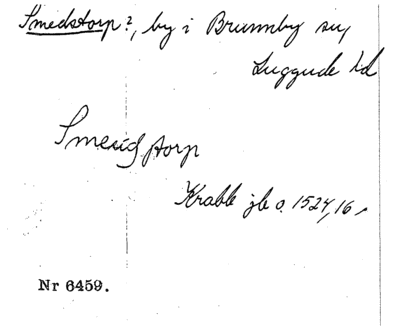 Smedstorp?, by i Brunnby sn,
Luggude hd
Smeidstorp
Krabbe jb o. 1524, 16.
Nr 6459.